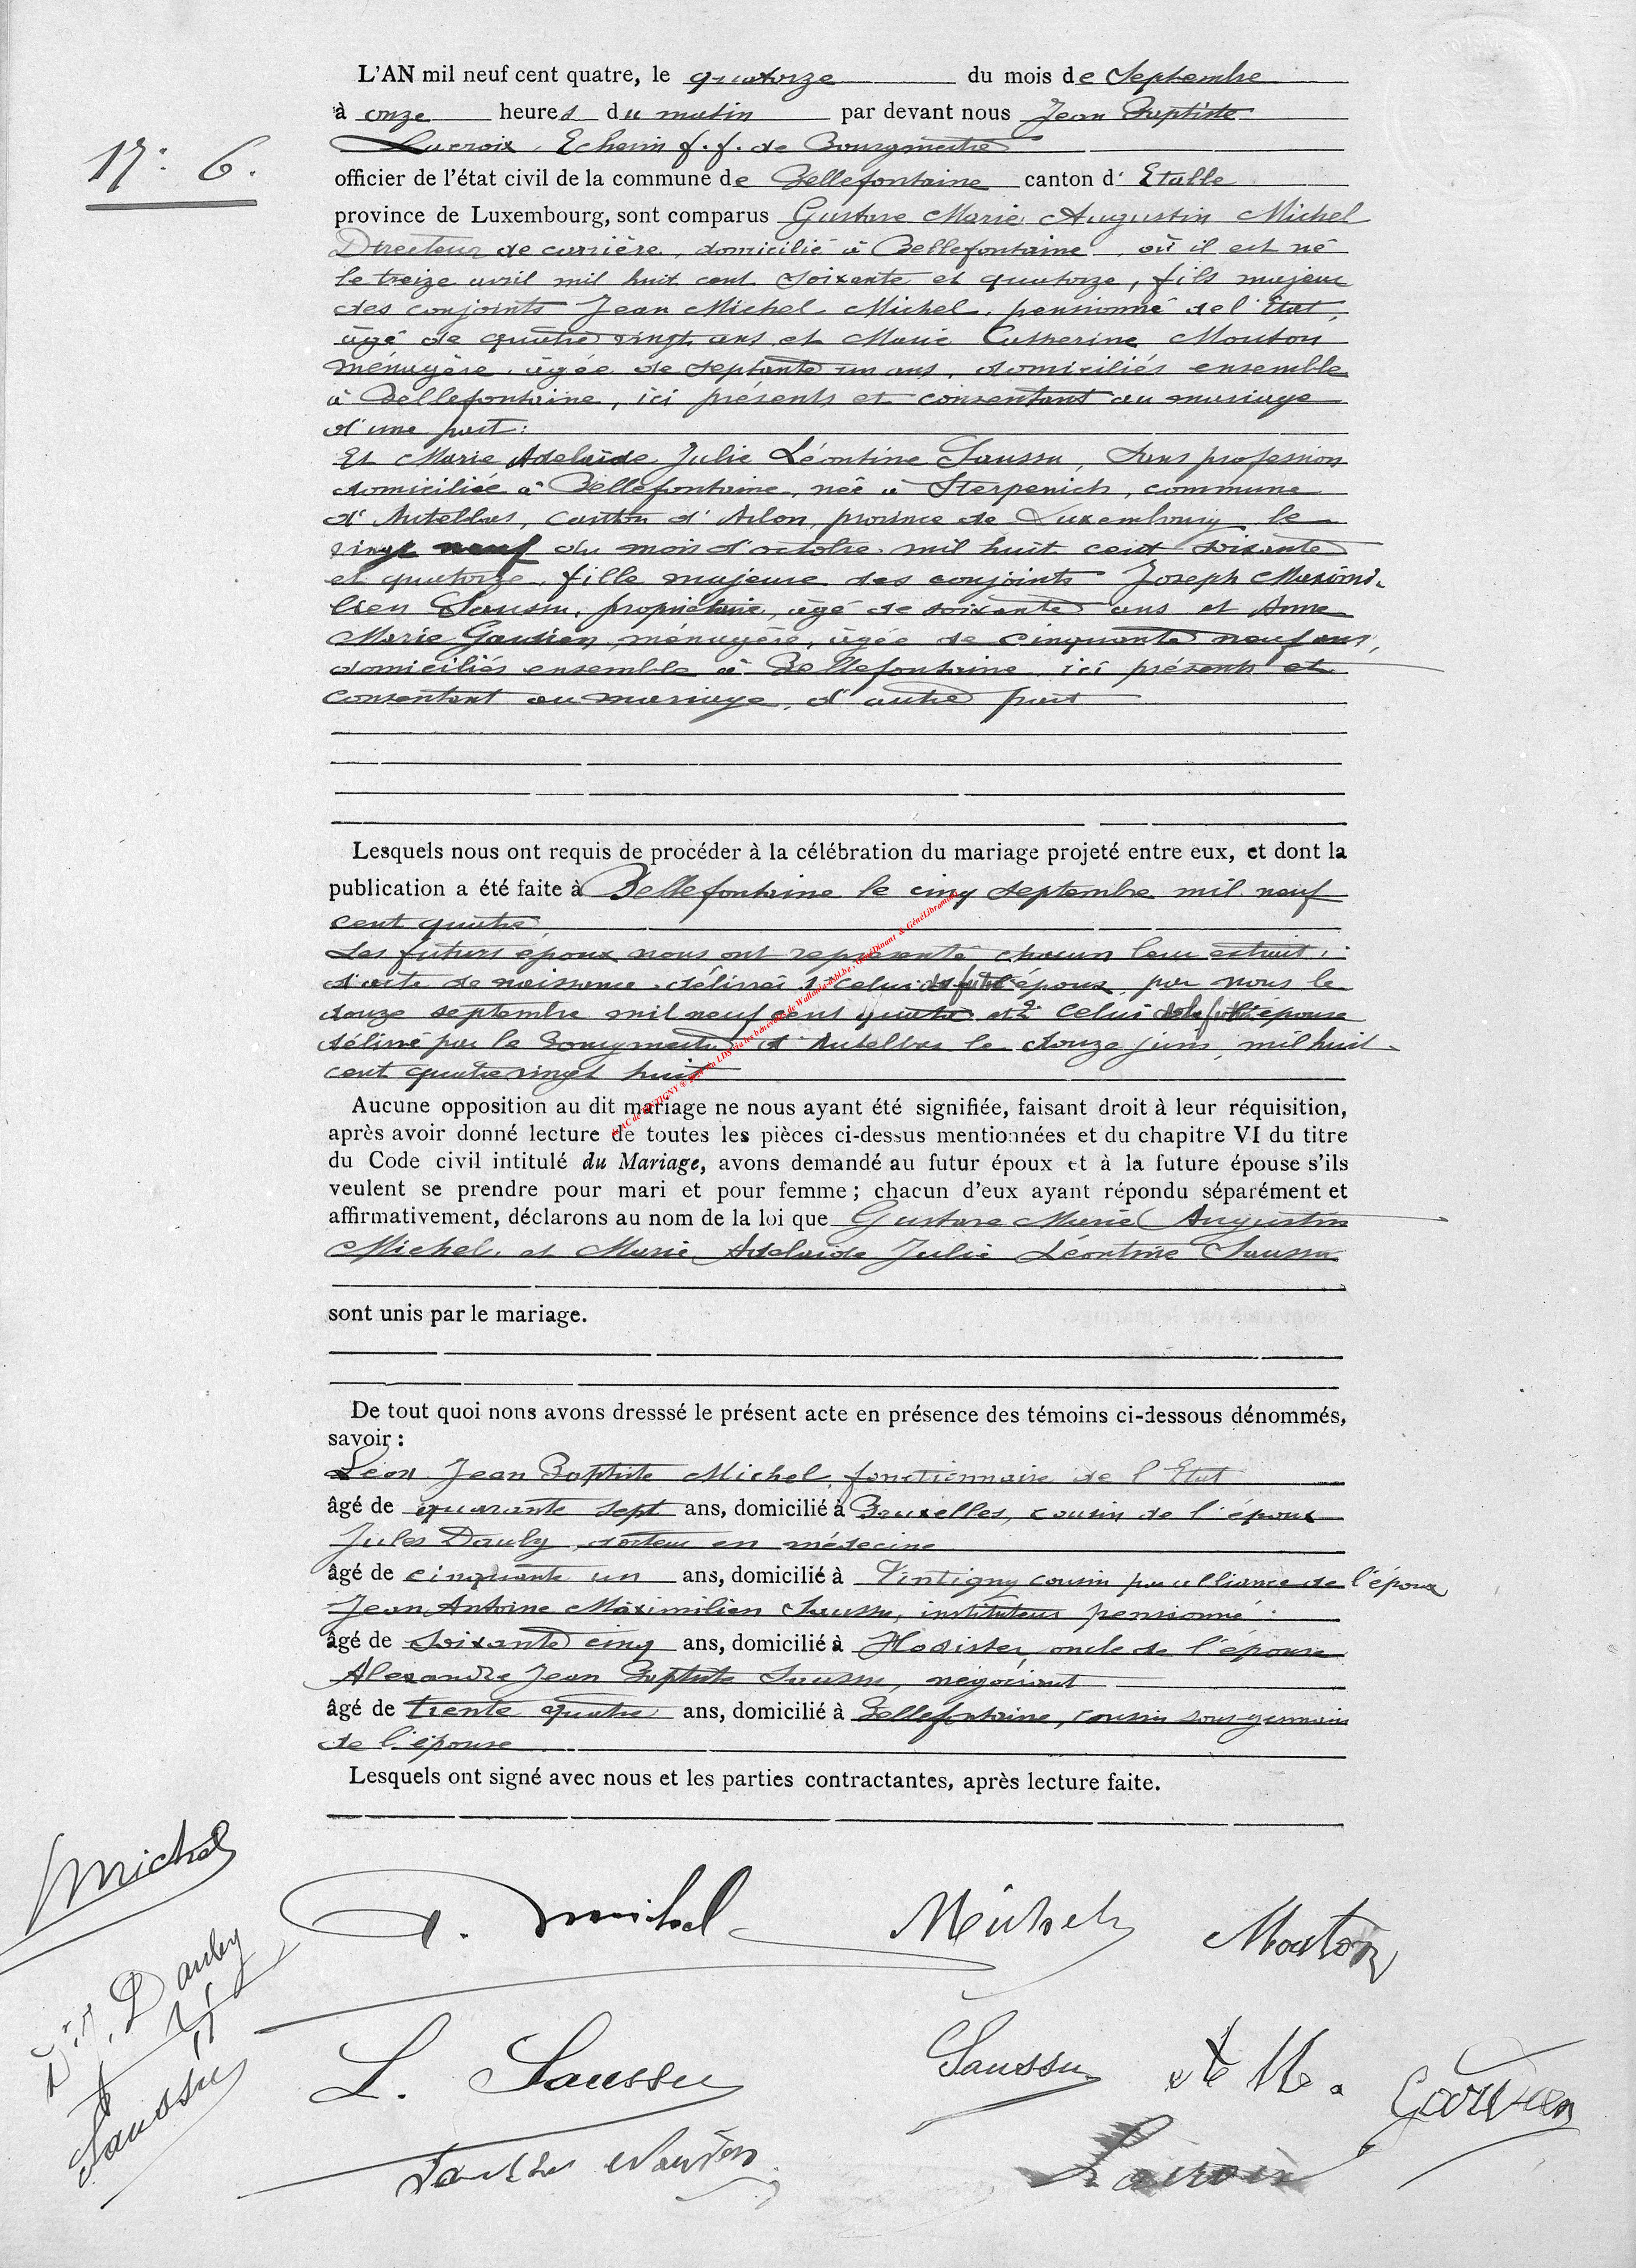 L'AN mil neuf cent quatre, le quatorze du mois de Septembre
à onze heures du matin par devant nous Jean Baptiste
Lacroix, Echevin f.f. de Bourgmestre
17: 6.
officier de l'état civil de la commune de Bellefontaine canton d' Etalle
province de Luxembourg, sont comparus Gustave Marie Augustin Michel
Directeur de carrière, domicilié à Bellefontaine, où il est né
le treize avril mil huit cent soixante et quatorze, fils majeur
des conjoints Jean Michel Michel, pensionné de l'Etat,
âgé de quatre vingt ans et Marie Catherine Mouton
ménagère, âgée de septante un ans, domiciliés ensemble
à Bellefontaine, ici présents et consentant au mariage
d'une part:
Et Marie Adelaïde Julie Léontine Saussu, Sans profession
domiciliée à Bellefontaine, née à Sterpenich, commune
d'Autelbas, canton d'Arlon, province de Luxembourg le
vingt neuf du mois d'octobre mil huit cent soixante
et quatorze, fille majeure des conjoints Joseph Maximi-
lien Saussu, propriétaire, âgé de soixante ans et Anne
Marie Gavsien, ménagère, âgée de cinquante neuf ans,
domiciliés ensemble à Bellefontaine, ici présents et
consentant au mariage, d'autre part
Lesquels nous ont requis de procéder à la célébration du mariage projeté entre eux, et dont la
publication a été faite à Bellefontaine le cinq septembre mil neuf
cent quatre,
Les futurs époux nous ont représenté chacun leur extrait
d'acte de naissance délivré 1° celui du futur époux par nous le
douze septembre mil neuf cent quatre et 2° celui de la future épouse
délivré par le Bourgmestre d'Autelbas le douze juin, mil huit
cent quatre vingt huit
Aucune opposition au dit mariage ne nous ayant été signifiée, faisant droit à leur réquisition,
après avoir donné lecture de toutes les pièces ci-dessus mentionnées et du chapitre VI du titre
du Code civil intitulé du Mariage, avons demandé au futur époux et à la future épouse s'ils
veulent se prendre pour mari et pour femme; chacun d'eux ayant répondu séparément et
affirmativement, déclarons au nom de la loi que Gustave Marie Augustin
Michel, et Marie Adelaïde Julie Léontine Saussu
sont unis par le mariage.
De tout quoi nons avons dresssé le présent acte en présence des témoins ci-dessous dénommés,
savoir:
Léon Jean Baptiste Michel, fonctionnaire de l'Etat
âgé de quarante sept ans, domicilié à Bruxelles, cousin de l'époux
Jules Dauby, docteur en médecine
âgé de cinquante un ans, domicilié à Tintigny cousin par alliance de l'époux
Jean Antoine Maximilien Saussu, instituteur pensionné
âgé de soixante cinq ans, domicilié à Hodister, oncle de l'épouse
Alexandre Jean Baptiste Saussu, négociant
âgé de trente quatre ans, domicilié à Bellefontaine, cousin sous germain
de l'épouse
Lesquels ont signé avec nous et les parties contractantes, après lecture faite.
Michel
G. Michel Michel Mouton
Dr J. Dauby
L. Saussu Saussu A M. Gavsien
Saussu
Lacroix